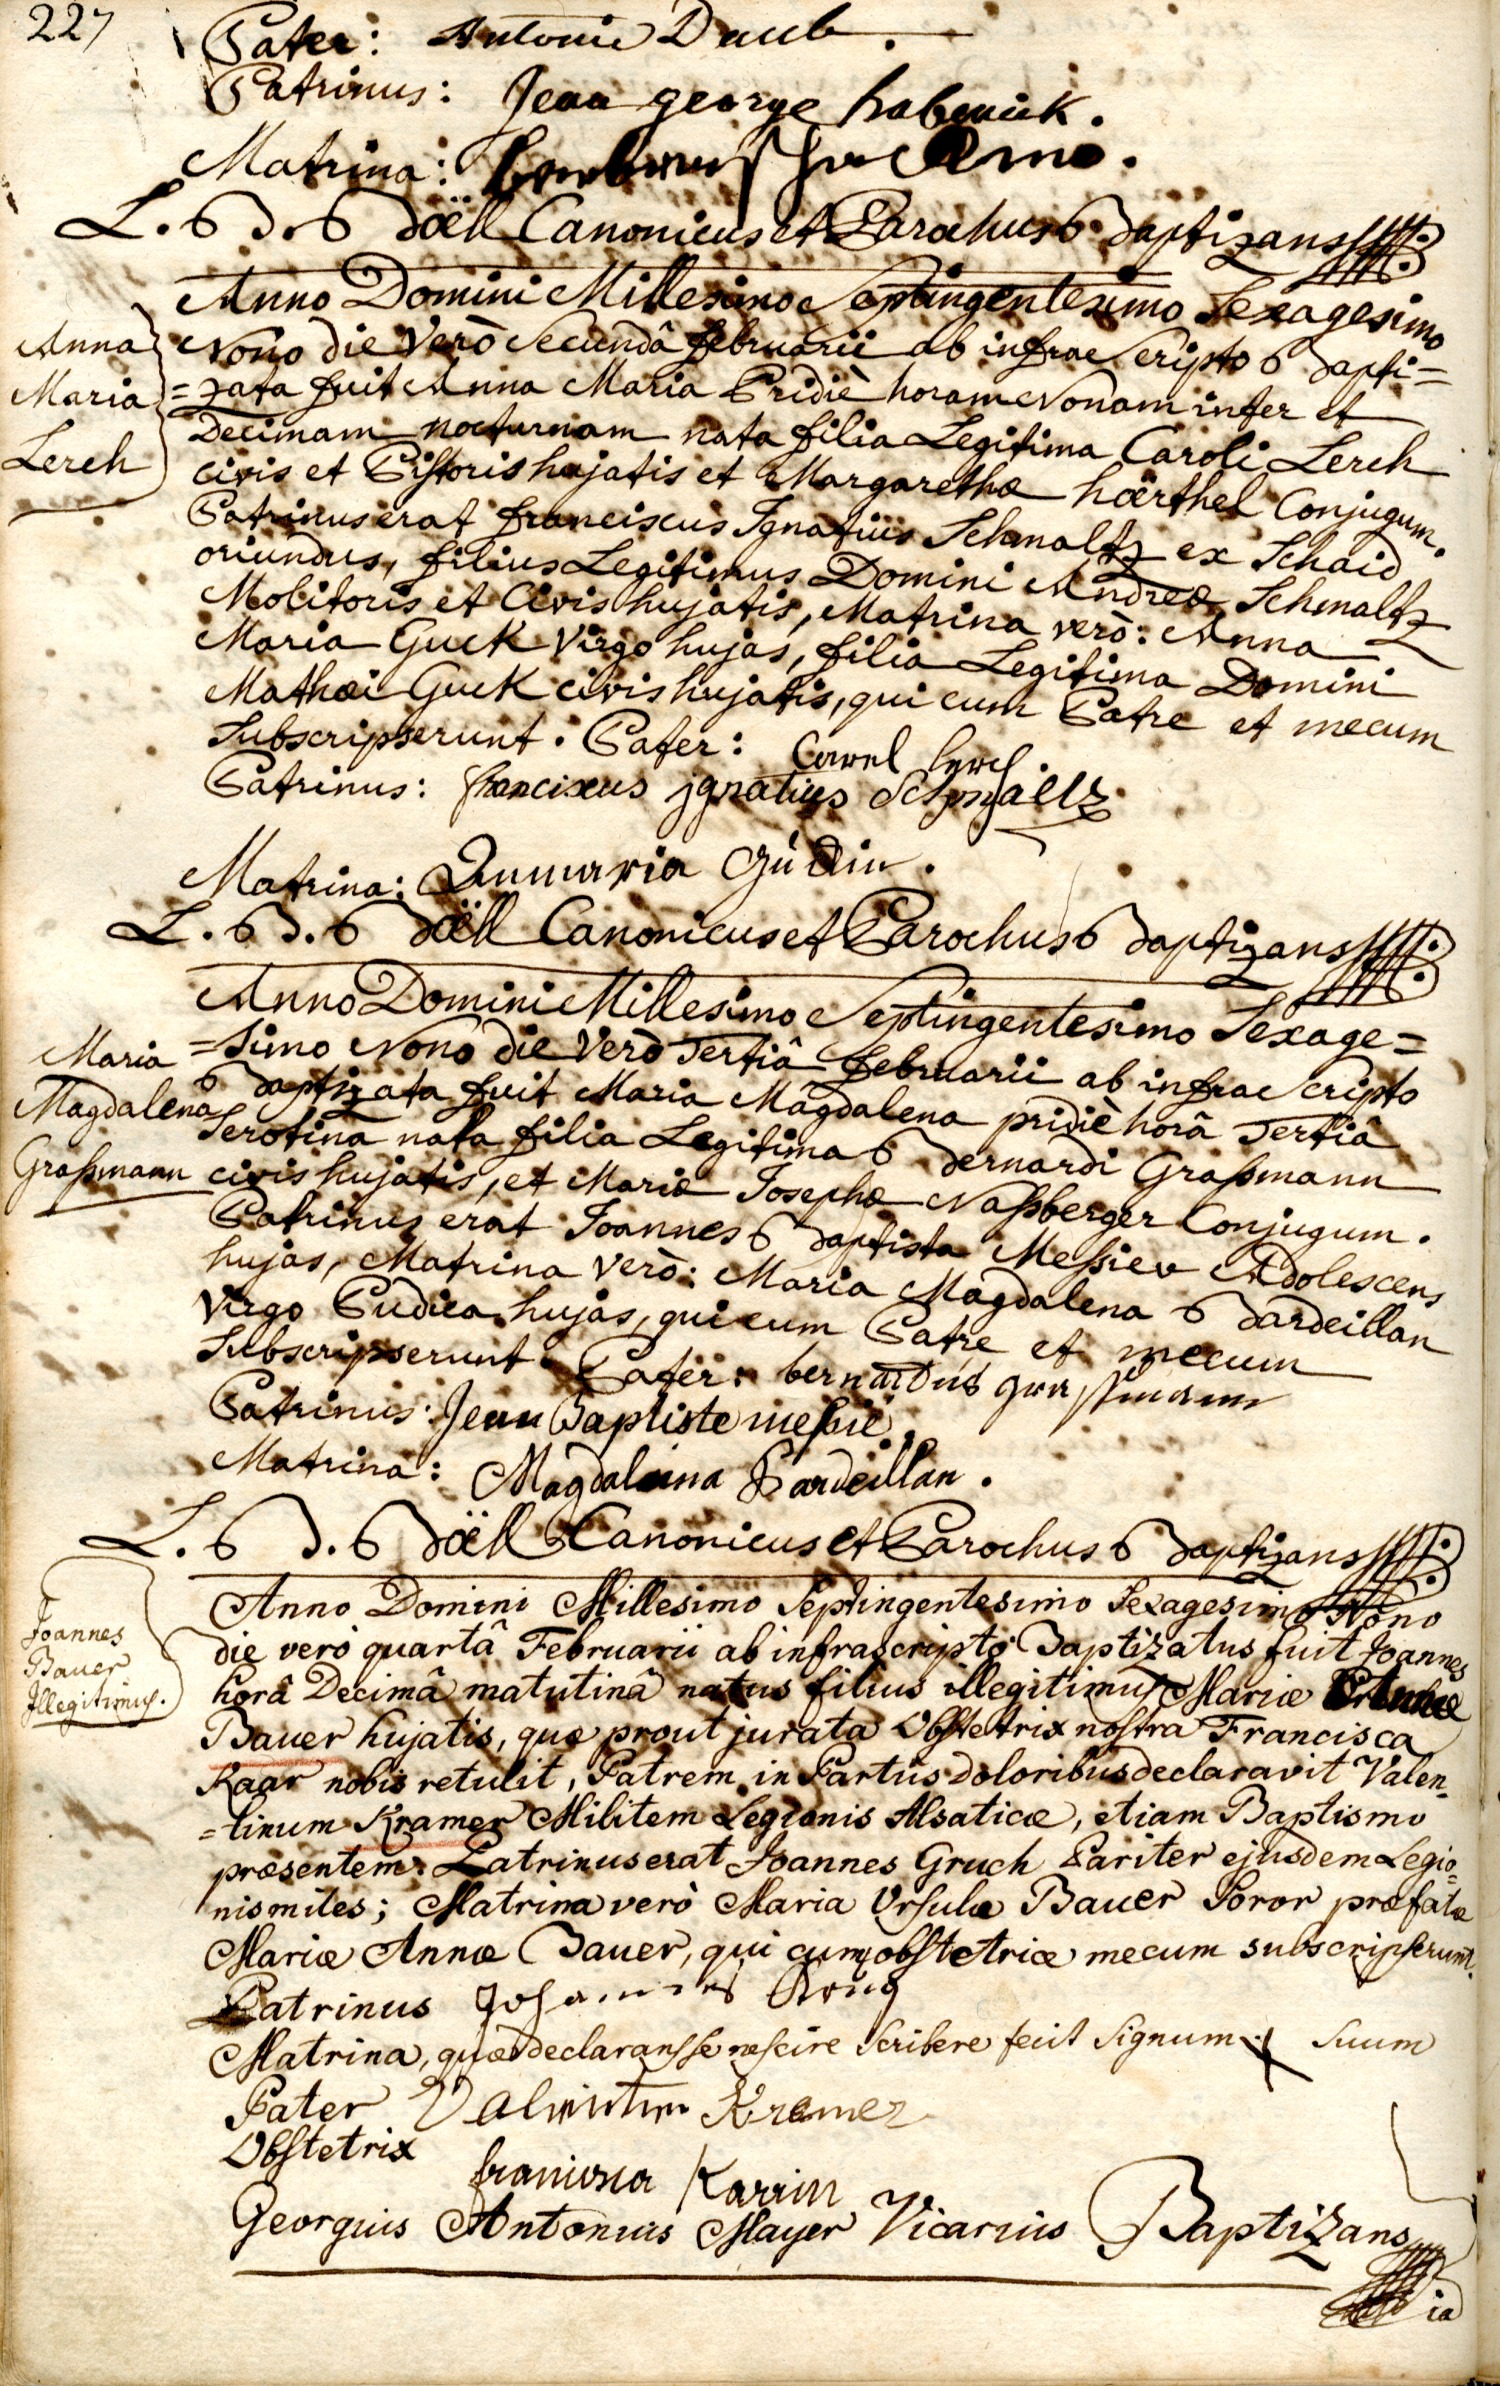 227
Pater: Antoni Daub.
Patrinus: Jean george habenick.
Matrina:
L. B. Böell Canonicus et Parochus Baptizans
Anno Domini Millesimo Septingentesimo Sexagesimo
Nono die Verò Secundâ februarii ab infrae Scripto Bapti=
=zata fuit Anna Maria Pridiè horam Nonam inter et
Decimam nocturnam nata filia Legitima Caroli Lerch
civis et Pistoris hujatis et Margarethæ härthel Conjugum.
Patrinus erat franciscus Ignatius Schmaltz ex Schaid
oriundus, filius Legitimus Domini Andreæ Schmaltz
Molitoris et Civis hujatis, Matrina verò: Anna
Maria Guck Virgo hujas, filia Legitima Domini
Mathæi Guck civis hujatis, qui cum Patre et mecum
Subscripserunt. Pater: Carel lerch.
Patrinus: franciscus jgnatius Schmaltz
Matrina: Anmaria Gückin.
L. B. Böell Canonicus et Parochus Baptizans
Anna
Maria
Lerch
Anno Domini Millesimo Septingentesimo Sexage=
=Simo Nono die Verò Tertiâ februarii ab infrae Scripto
Baptizata fuit Maria Magdalena pridiè horâ Tertiâ
Serotinâ nata filia Legitima Bernardi Graßmann
civis hujatis, et Mariæ Josephæ Naßberger Conjugum.
Patrinus erat Joannes Baptista Meßiev Adolescens
hujas, Matrina Verò: Maria Magdalena Bardeillan
Virgo Pudica hujas, qui cum Patre et mecum
Subscripserunt. Pater: bernardus graßmann
Patrinus: Jean Baptiste meßie.
Matrina: Magdaleina Bardeillan.
L. B. Böell Canonicus et Parochus Baptizans
Maria
Magdalena
Graßmann
Anno Domini Millesimo Septingentesimo Sexagesimo Nono
die verò quartâ Februarii ab infrascripto Baptizatus fuit Joannes
horâ Decimâ matutinâ natus filius illegitimus Mariæ Annæ
Bauer hujatis, quæ prout jurata Obstetrix nostra Francisca
Kaar nobis retulit, Patrem in Partûs doloribus declaravit Valen-
=tinum Kramer Militem Legionis Alsaticæ, etiam Baptismo
præsentem. Patrinus erat Joannes Gruch Pariter ejusdem Legio-
nis miles; Matrina verò Maria Ursula Bauer Soror præfatæ
Mariæ Annæ Bauer, qui cum obstetrice mecum subscripserunt.
Patrinus Johannes
Matrina, quæ declarans se nescire Scribere fecit Signum + Suum
Pater Valentin Kremer
Obstetrix francisca Karrin
Georgius Antonius Mayer Vicarius Baptizans
Joannes
Bauer
Illegitimus.